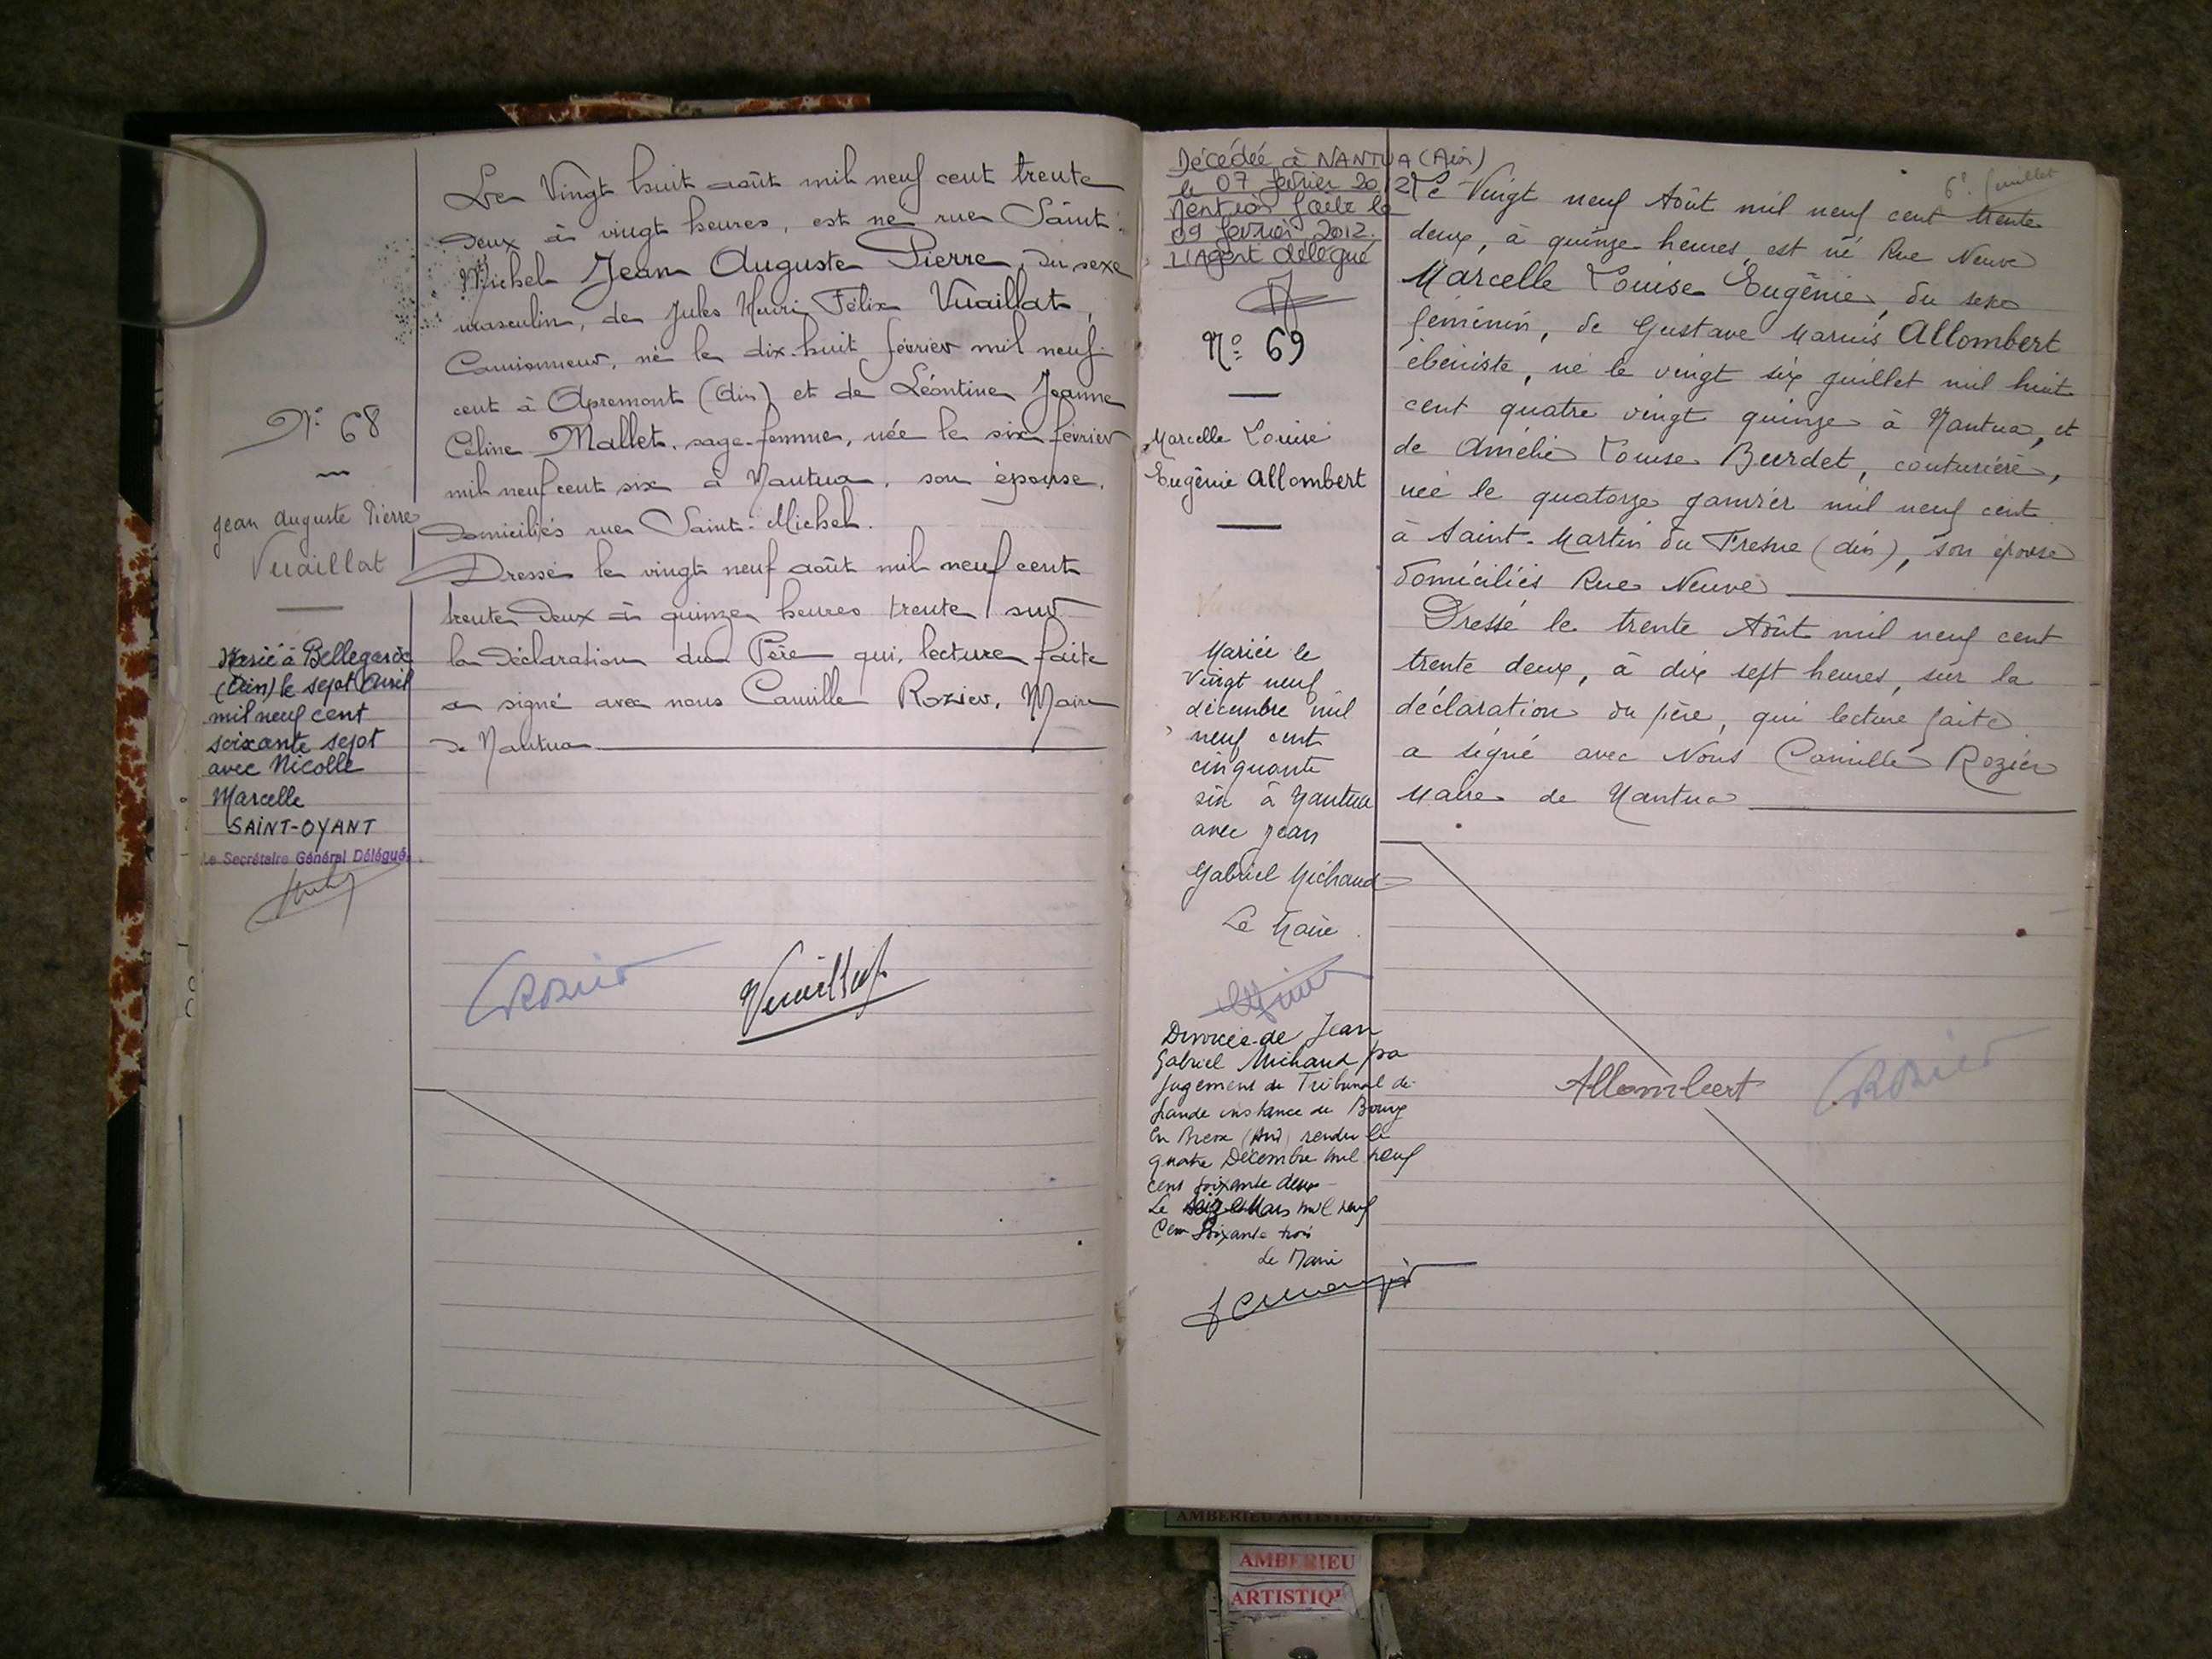 N° 68
Jean Auguste Pierre
Vuaillat
Marié à Bellegarde
(Ain) le sept Avril
mil neuf cent
soixante sept
avec Nicolle
Marcelle
SAINT-OYANT
Le Secrétaire Général Délégué.
Le Vingt huit août mil neuf cent trente
deux à vingt heures, est né rue Saint-
Michel Jean Auguste Pierre, du sexe
masculin, de Jules Henri Félix Vuaillat,
Camionneur, né le dix-huit février mil neuf
cent à Apremont (Ain) et de Léontine Jeanne
Céline Mallet, sage-femme, née le six février
mil neuf cent six à Nantua, son épouse,
domiciliés rue Saint-Michel.
Dressé le vingt neuf août mil neuf cent
trente deux à quinze heures trente, sur
la déclaration du Père qui, lecture faite
a signé avec nous Camille Rozier, Maire
de Nantua
CRozier
Vuaillat
Décédée à NANTUA (Ain)
le 07 février 2012
Mention faite le
09 février 2012.
L'Agent délégué
N° 69
Marcelle Louise
Eugénie Allombert
Mariée le
Vingt neuf
décembre mil
neuf cent
cinquante
six à Nantua
avec Jean
Gabriel Michaud
Le Maire
Divorcée de Jean
Gabriel Michaud par
Jugement du Tribunal de
grande instance de Bourg
en Bresse (Ain) rendu le
quatre Décembre mil neuf
cent soixante deux
Le seize Mars mil neuf
Cent Soixante trois
Le Maire
6e feuillet
Le Vingt neuf Août mil neuf cent trente
deux, à quinze heures, est né Rue Neuve
Marcelle Louise Eugénie, du sexe
féminin, de Gustave Marius Allombert
ébéniste, né le vingt six juillet mil huit
cent quatre vingt quinze à Nantua, et
de Amélie Louise Burdet, couturière,
née le quatorze janvier mil neuf cent
à Saint-Martin du Fresne (Ain), son épouse
domiciliés Rue Neuve
Dressé le trente Août mil neuf cent
trente deux, à dix sept heures, sur la
déclaration du père, qui lecture faite
a signé avec Nous Camille Rozier
Maire de Nantua
Allombert
CRozier
AMBERIEU ARTISTIQUE
AMBERIEU
ARTISTIQU